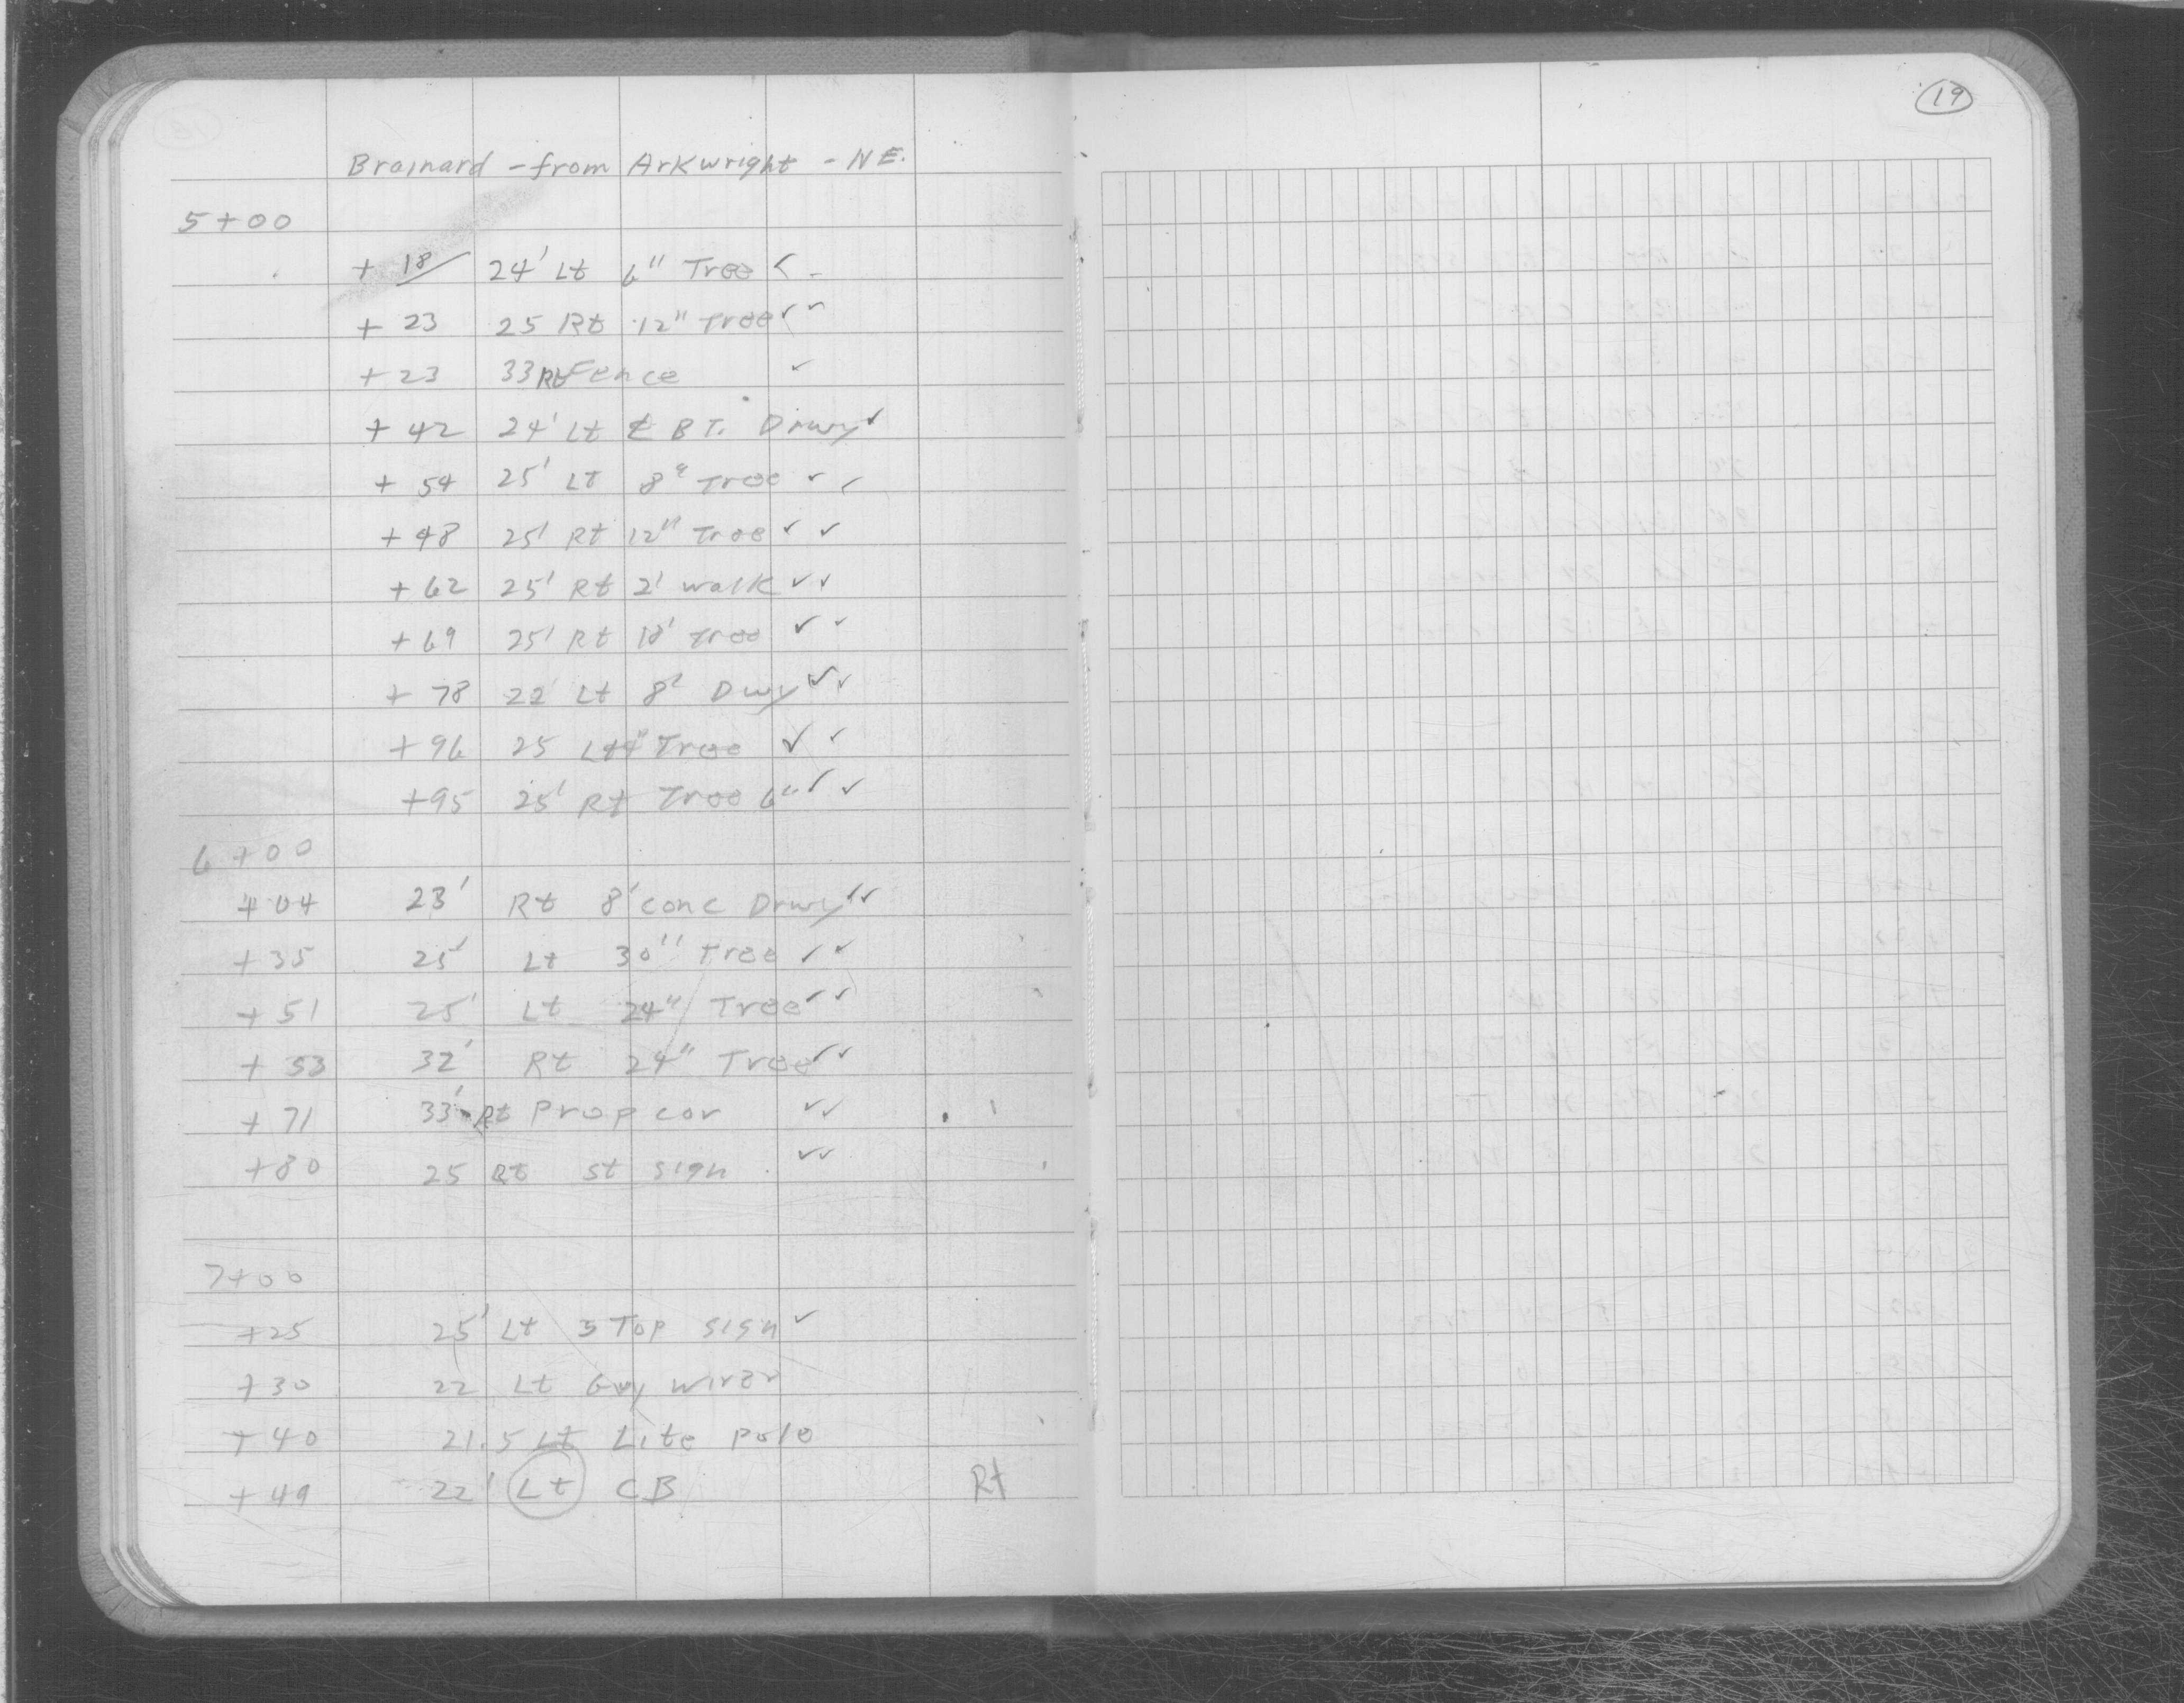 19
Brainard - from Arkwright - NE.
5+00
+ 18 24' Lt 6" Tree
+ 23 25 Rt 12" Tree ✓✓
+ 23 33 Rt Fence ✓
+ 42 24' Lt ℄ BT. Drwy ✓
+ 54 25' Lt 8" Tree ✓✓
+ 48 25' Rt 12" Tree ✓✓
+ 62 25' Rt 2' walk ✓✓
+ 69 25' Rt 18' Tree ✓✓
+ 78 22 Lt 8' Dwy ✓✓
+ 96 25 Lt 4" Tree ✓✓
+95 25' Rt Tree 6" ✓✓
6+00
+04 23' Rt 8' conc Drwy ✓✓
+35 25' Lt 30" Tree ✓✓
+51 25' Lt 24" Tree ✓✓
+53 32' Rt 24" Tree ✓✓
+71 33' Rt Prop cor ✓✓
+80 25 Rt St sign ✓✓
7+00
+25 25' Lt STop sign ✓
+30 22 Lt Guy wire
+40 21.5 Lt Lite pole
+49 22' Lt CB Rt